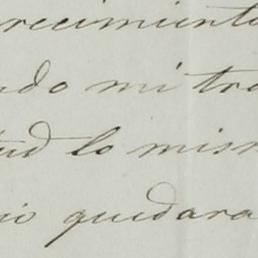 recimiento
ndo mi tra
tud lo mism
io quedara